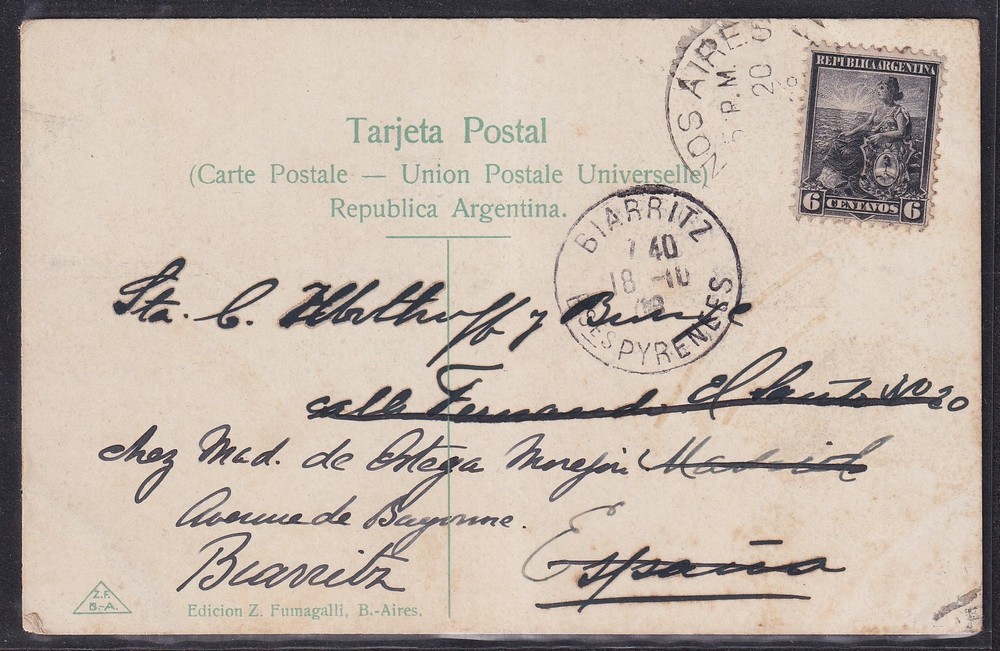 NOS AIRES
5 P.M.
20
REPUBLICA ARGENTINA
6 CENTAVOS 6
Tarjeta Postal
(Carte Postale — Union Postale Universelle)
Republica Argentina.
BIARRITZ
7 40
18 -10
08
BSES PYRENEES
Sta. C. y Bunge
calle Fernando El Santo No 20
chez Mad. de Ortega Morejón Madrid
Avenue de Bayonne.
Biarritz
España
Z.F.
B.-A.
Edicion Z. Fumagalli, B.-Aires.